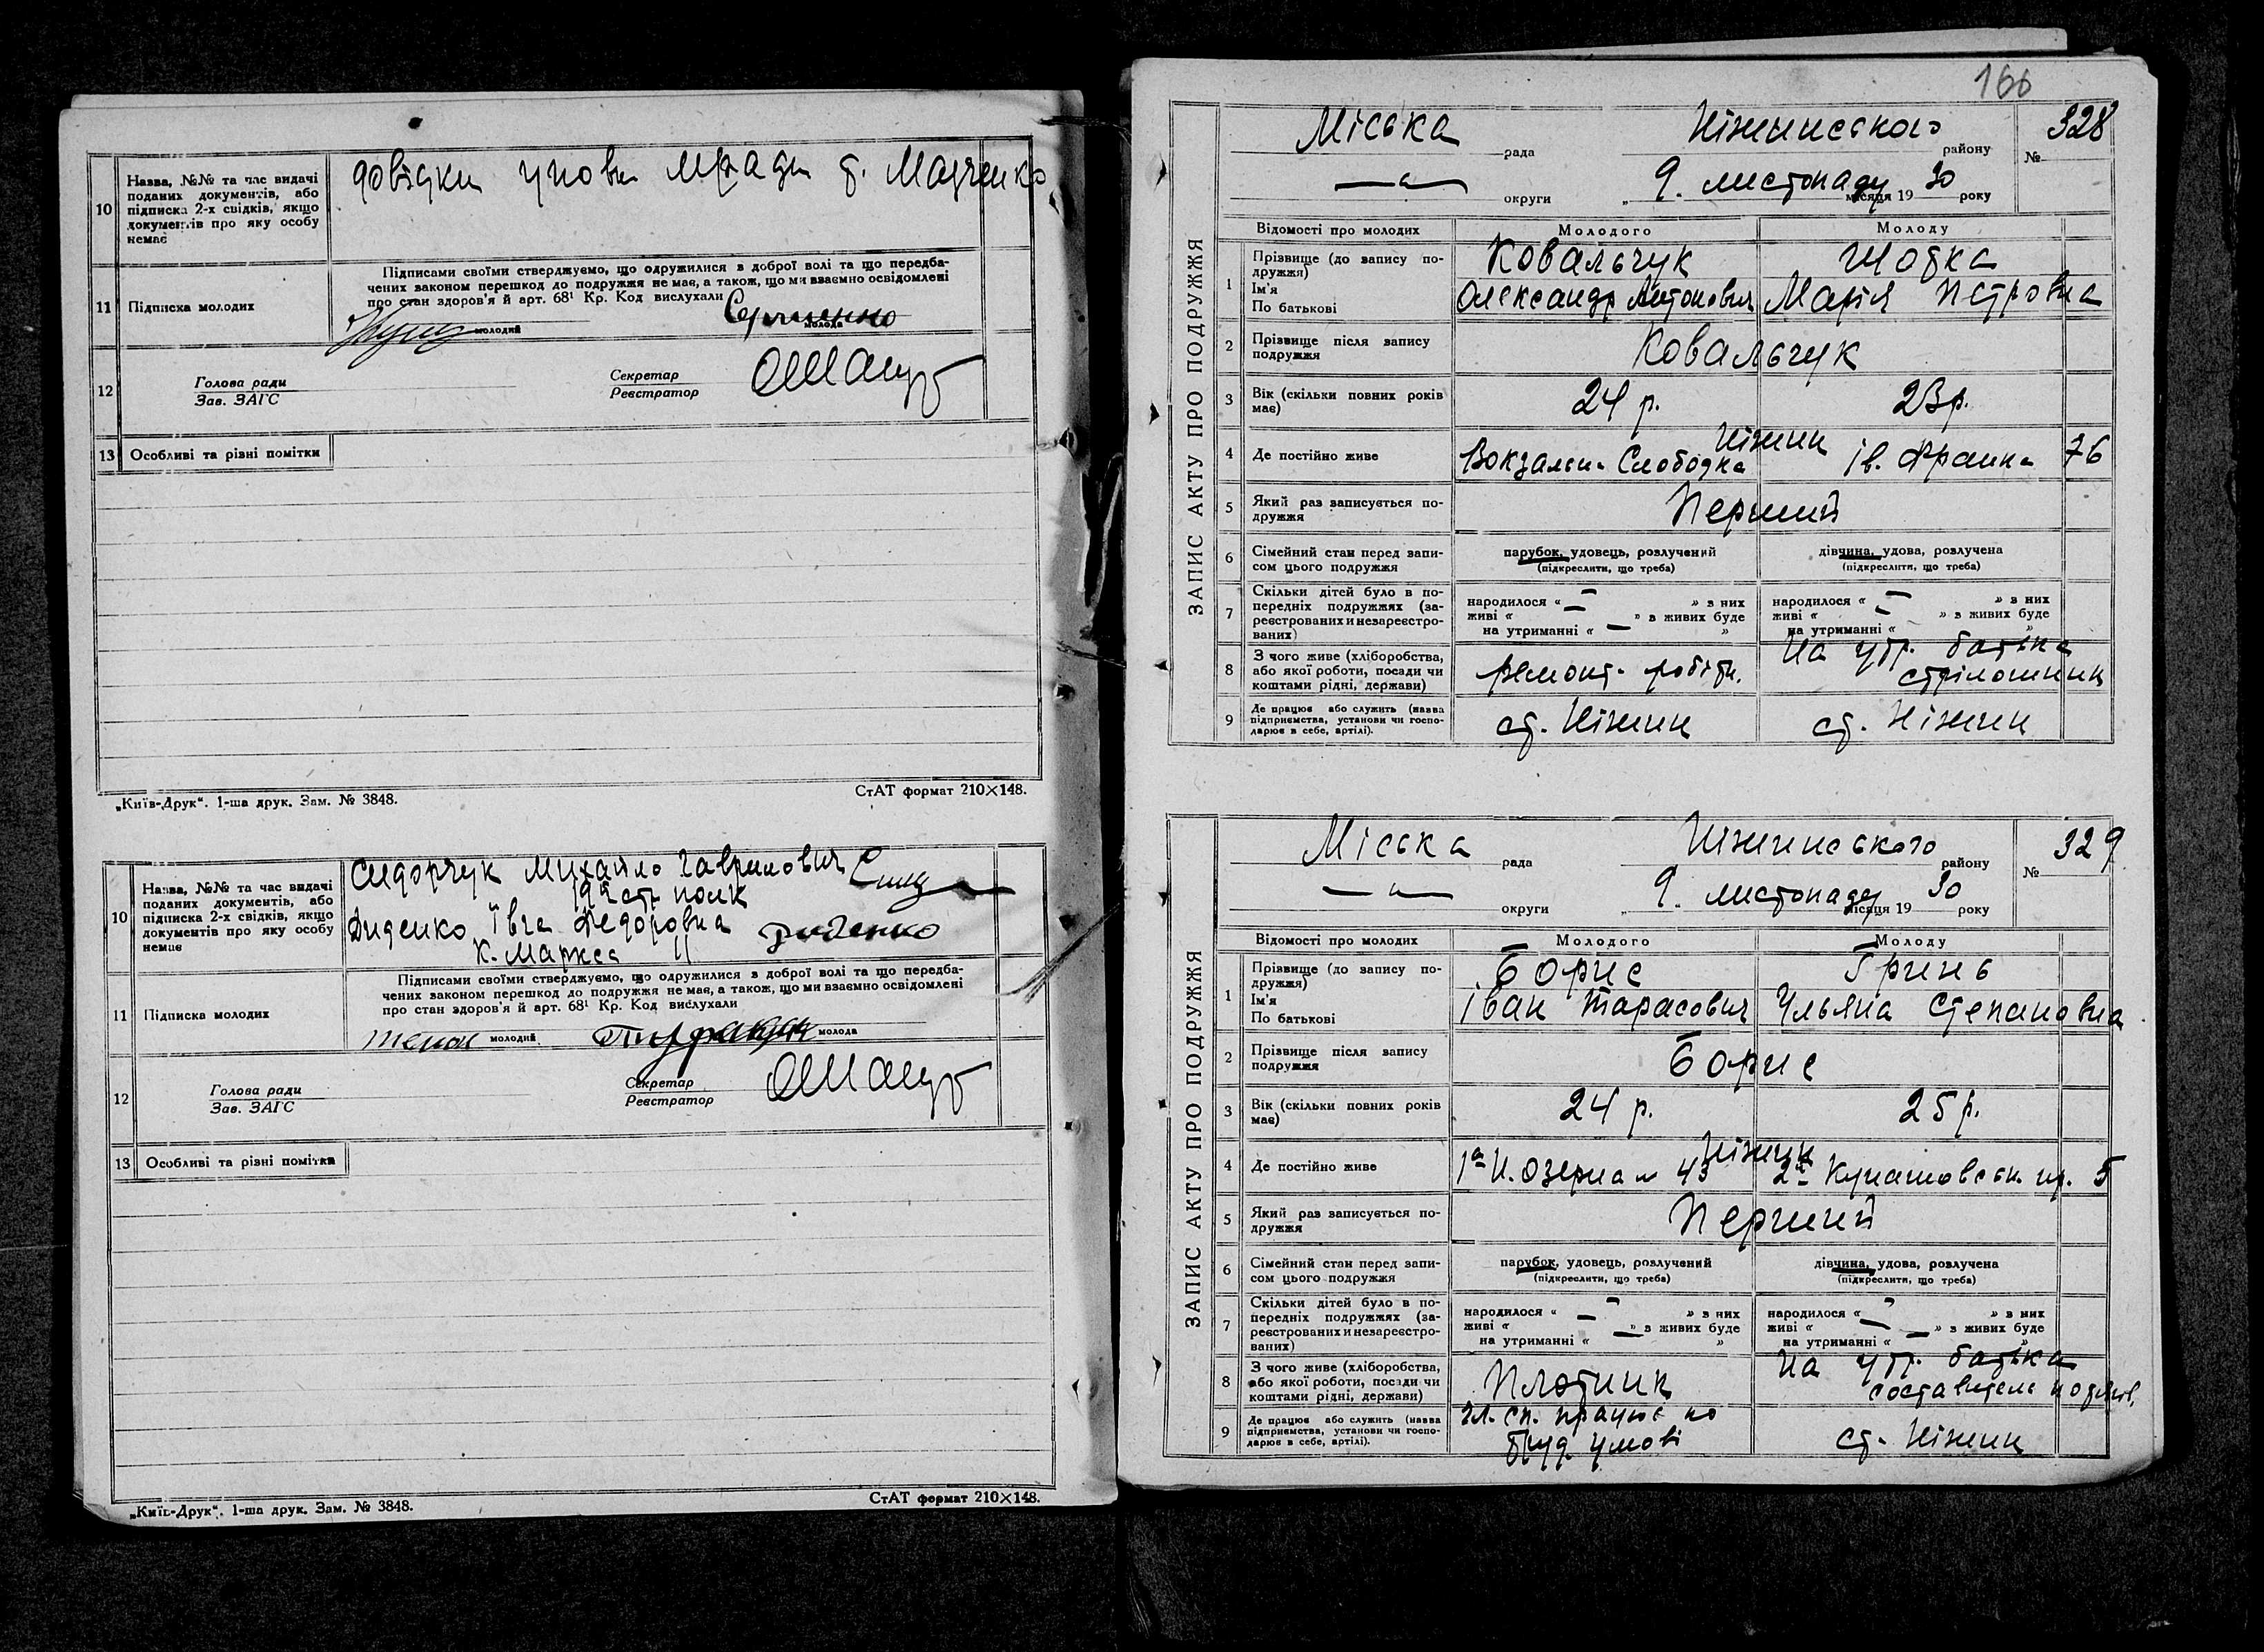 10
Назва, №№ та час видачі
поданих документів, або
підписка 2-х свідків, якщо
документів про яку особу
немає
довідки
11
Підписка молодих
Підписами своїми стверджуємо, що одружилися з доброї волі та що передба-
чених законом перешкод до подружжя немає, а також, що ми взаємно освідомлені
про стан здоров'я й арт. 68¹ Кр. Код вислухали
молодий
молода
12
Голова ради
Зав. ЗАГС
Секретар
Реєстратор
13 Особливі та різні помітки
„Київ-Друк“. 1-ша друк. Зам. № 3848.
СтАТ формат 210×148.
10
Назва, №№ та час видачі
поданих документів, або
підписка 2-х свідків, якщо
документів про яку особу
немає
Сидорчук Михайло Гаврилович
19й стр полк
Диденко Івга Федоровна Диденко
К. Маркса 11
11
Підписка молодих
Підписами своїми стверджуємо, що одружилися з доброї волі та що передба-
чених законом перешкод до подружжя немає, а також, що ми взаємно освідомлені
про стан здоров'я й арт. 68¹ Кр. Код вислухали
молодий
молода
12
Голова ради
Зав. ЗАГС
Секретар
Реєстратор
13 Особливі та різні помітки
„Київ-Друк“. 1-ша друк. Зам. № 3848.
СтАТ формат 210×148.
166
ЗАПИС АКТУ ПРО ПОДРУЖЖЯ
Міська рада Ніжинського району № 328
—„— округи „ 9. листопаду місяця 1930 року
Відомості про молодих Молодого Молоду
1 Прізвище (до запису по-
дружжя)
Ім'я
По батькові
Ковальчук
Олександр Антонович
Шотка
Марія Петровна
2 Прізвище після запису
подружжя
Ковальчук
3 Вік (скільки повних років
має)
24 р. 23 р.
4 Де постійно живе
Ніжин
Вокзальн. Слободка Ів. Франка 76
5 Який раз записується по-
дружжя
Перший
6 Сімейний стан перед запи-
сом цього подружжя
парубок, удовець, розлучений
(підкреслити, що треба)
дівчина, удова, розлучена
(підкреслити, що треба)
7 Скільки дітей було в по-
передніх подружжях (за-
реєстрованих и незареєстро-
ваних)
народилося « — » з них
живі « — » в живих буде
на утриманні « — »
народилося « — » з них
живі « — » в живих буде
на утриманні « »
8 З чого живе (хліборобства,
або якої роботи, посади чи
коштами рідні, держави)
ремонт. робітн.
на утр. батька
стрілошник
9 Де працює або служить (назва
підприємства, установи чи госпо-
дарює в себе, артілі).
ст. Ніжин ст. Ніжин
ЗАПИС АКТУ ПРО ПОДРУЖЖЯ
Міська рада Ніжинського району № 329
—„— округи „ 9. листопаду місяця 1930 року
Відомості про молодих Молодого Молоду
1 Прізвище (до запису по-
дружжя)
Ім'я
По батькові
Борис
Іван Тарасович
Гринь
Ульяна Степановна
2 Прізвище після запису
подружжя
Борис
3 Вік (скільки повних років
має)
24 р. 25 р.
4 Де постійно живе
Ніжин
1а Н. Озерна 43 2й Кунашовськ. пр. 5
5 Який раз записується по-
дружжя
Перший
6 Сімейний стан перед запи-
сом цього подружжя
парубок, удовець, розлучений
(підкреслити, що треба)
дівчина, удова, розлучена
(підкреслити, що треба)
7 Скільки дітей було в по-
передніх подружжях (за-
реєстрованих и незареєстро-
ваних)
народилося « — » з них
живі « — » в живих буде
на утриманні « »
народилося « — » з них
живі « — » в живих буде
на утриманні « — »
8 З чого живе (хліборобства,
або якої роботи, посади чи
коштами рідні, держави)
Плотник
на утр. батька
составитель
9 Де працює або служить (назва
підприємства, установи чи госпо-
дарює в себе, артілі).
чл. сп. працює по
труд умові
ст. Ніжин